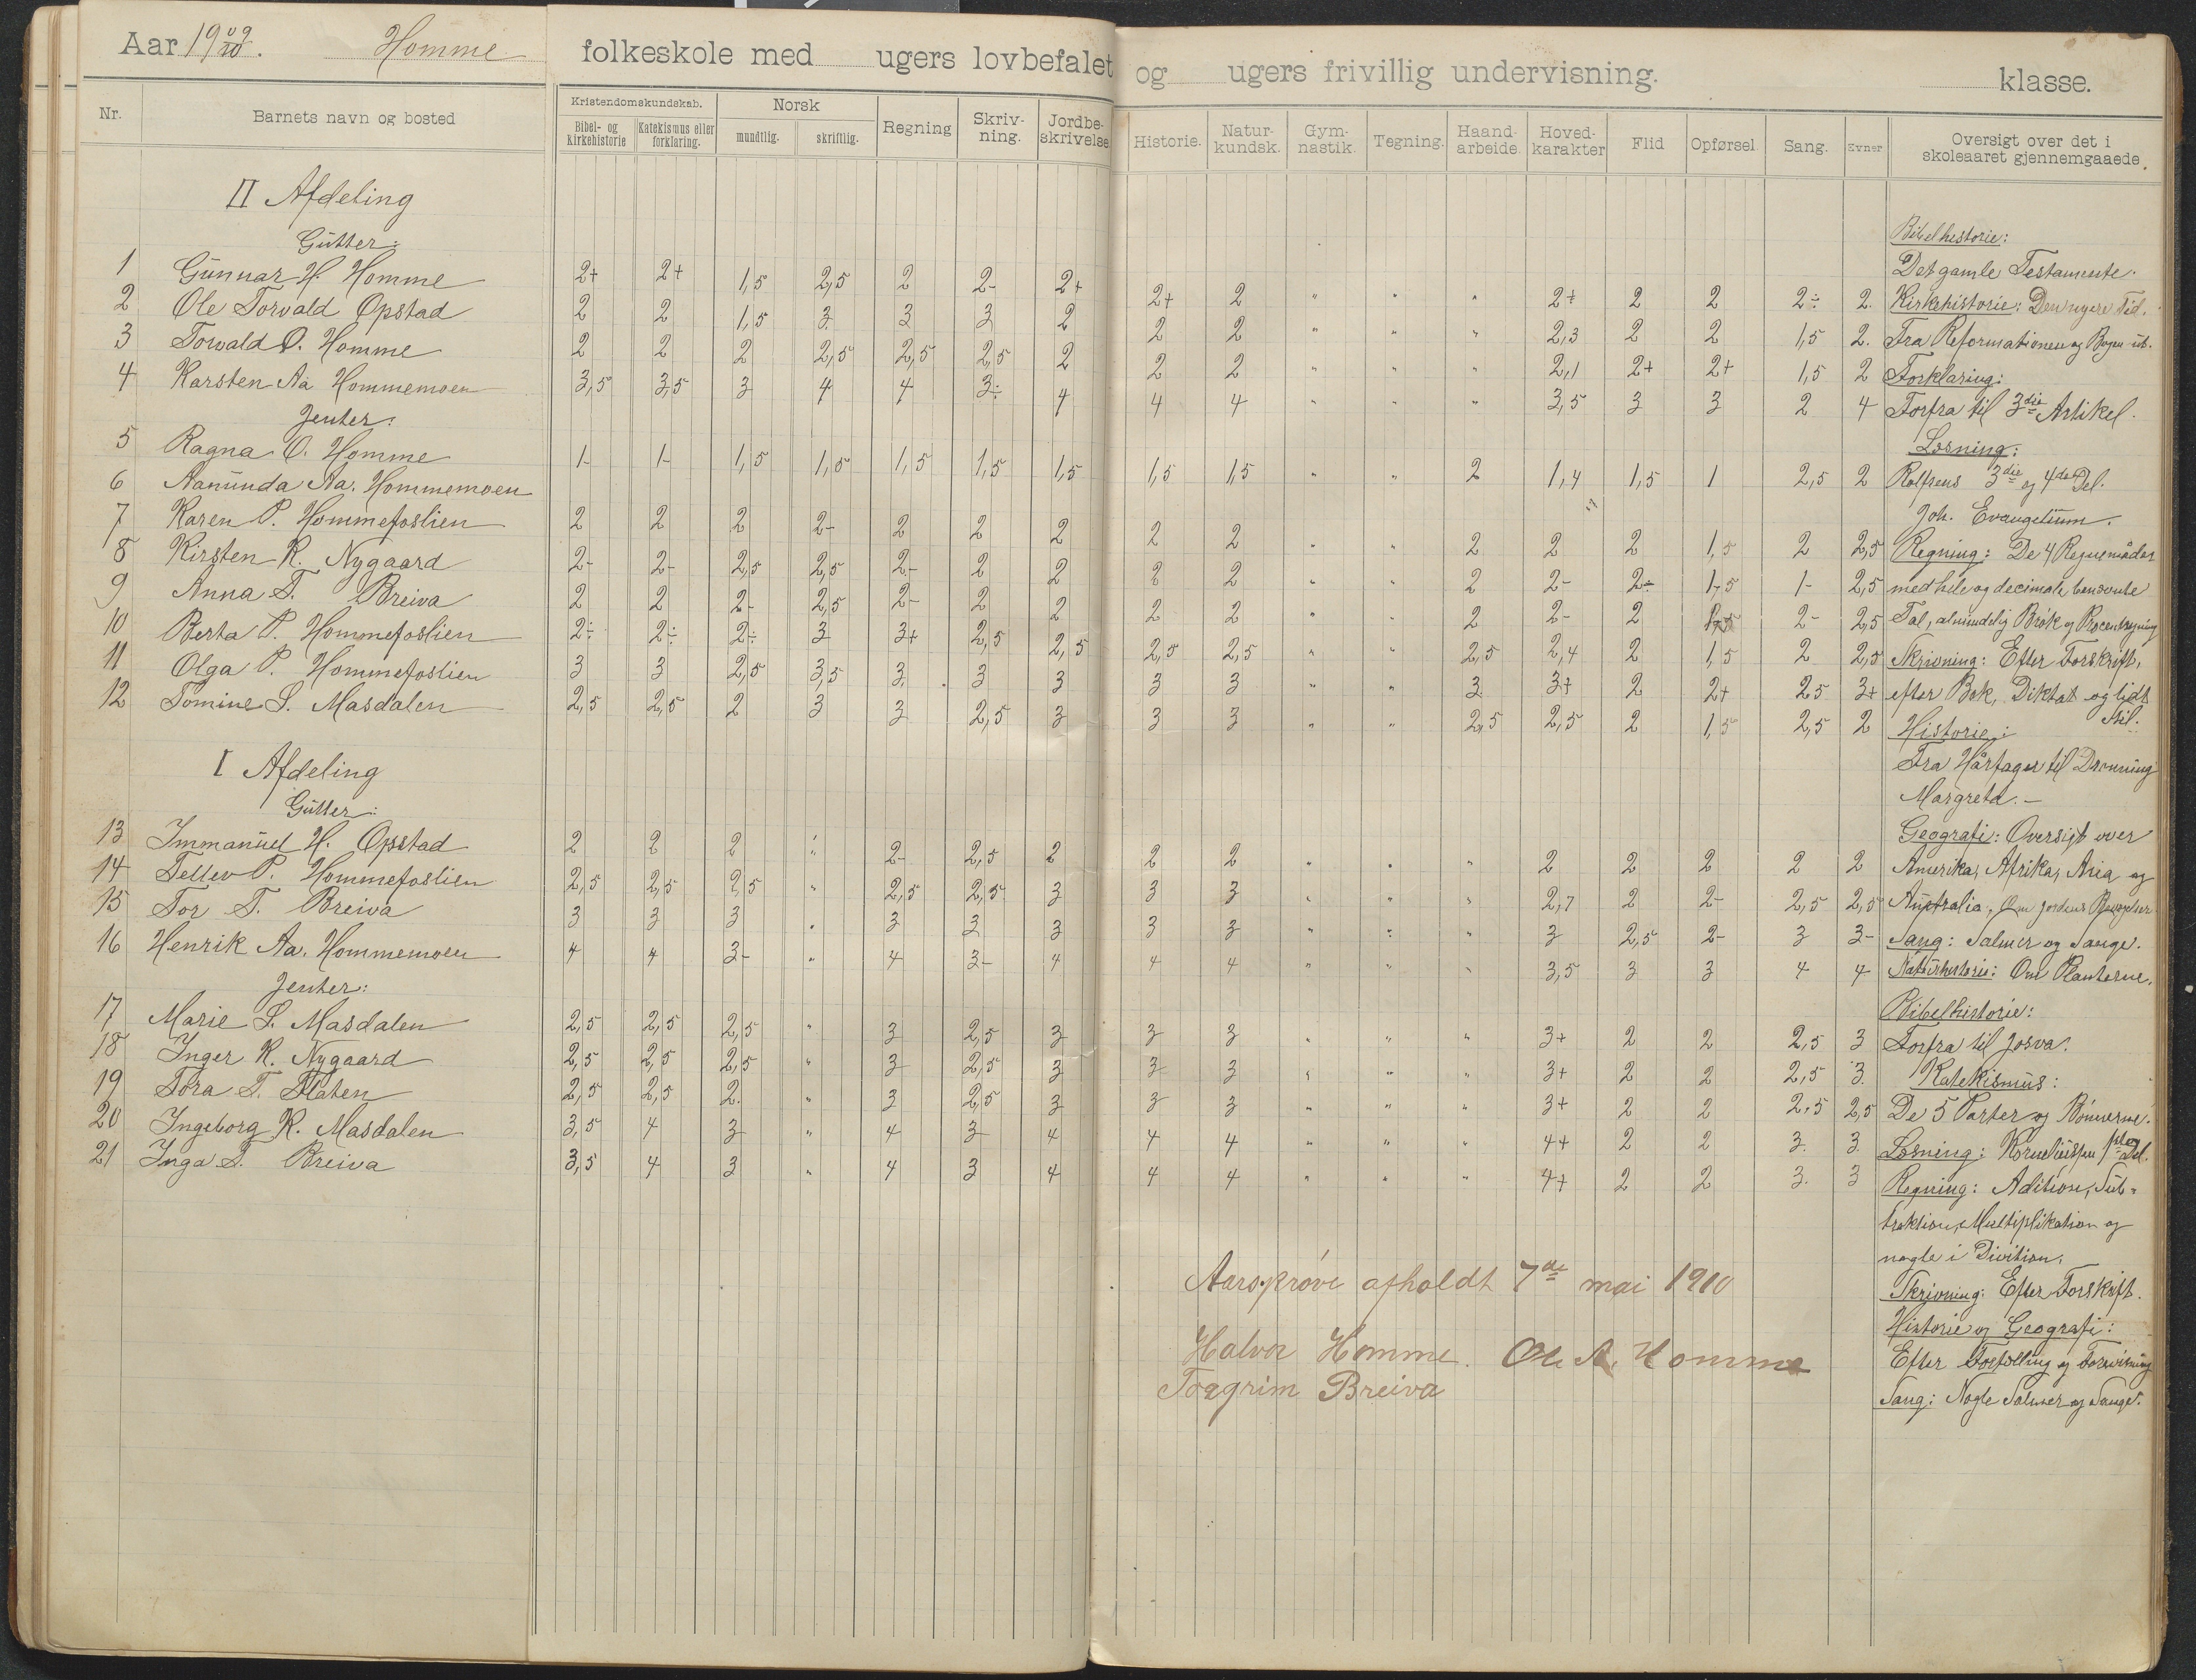 Aar 1909/10. Homme folkeskole med ugers lovbefalet og ugers frivillig undervisning. klasse.
Nr. Barnets navn og bosted Kristendomskundskab. Norsk Regning Skriv-ning. Jordbe-skrivelse Historie. Natur-kundsk. Gym-nastik. Tegning. Haand-arbeide. Hoved-karakter Flid Opførsel Sang. Evner Oversigt over det i skoleaaret gjennemgaaede.
Bibel- og kirkehistorie Katekismus eller forklaring. mundtlig. skriftlig.
II Afdeling
Gutter:
1 Gunnar H. Homme 2+ 2+ 1,5 2,5 2 2- 2+ 2+ 2 " " " 2+ 2 2 2÷ 2.
2 Ole Torvald Opstad 2 2 1,5 3 3 3 2 2 2 " " " 2,3 2 2 1,5 2.
3 Torvald O. Homme 2 2 2 2,5 2,5 2,5 2 2 2 " " " 2,1 2+ 2+ 1,5 2
4 Karsten Aa Hommemoen 3,5 3,5 3 4 4 3÷ 4 4 4 " " " 3,5 3 3 2 4
Jenter:
5 Ragna O. Homme 1- 1- 1,5 1,5 1,5 1,5 1,5 1,5 1,5 " " 2 1,4 1,5 1 2,5 2
6 Aanunda Aa. Hommemoen
7 Karen P. Hommefoslien 2 2 2 2- 2 2 2 2 2 " " 2 2 2 1,5 2 2,5
8 Kirsten K. Nygaard 2- 2- 2,5 2,5 2- 2 2 2 2 " " 2 2- 2÷ 1,5 1- 2,5
9 Anna T. Breiva 2 2 2- 2,5 2- 2 2 2 2 " " 2 2- 2 2- 2,5
10 Berta P. Hommefoslien 2÷ 2÷ 2÷ 3 3+ 2,5 2,5 2,5 2,5 " " 2,5 2,4 2 1,5 2 2,5
11 Olga P. Hommefoslien 3 3 2,5 3,5 3 3 3 3 3 " " 3 3+ 2 2+ 2,5 3+
12 Tomine S. Masdalen 2,5 2,5 2 3 3 2,5 3 3 3 " " 2,5 2,5 2 1,5 2,5 2
I Afdeling
Gutter:
13 Immanuel H. Opstad 2 2 2 " 2- 2,5 2 2 2 " " " 2 2 2 2 2
14 Tellev P. Hommefoslien 2,5 2,5 2,5 " 2,5 2,5 3 3 3 " " " 2,7 2 2- 2,5 2,5
15 Tor T. Breiva 3 3 3 " 3 3 3 3 3 " " " 3 2,5 2- 3 3-
16 Henrik Aa. Hommemoen 4 4 3- " 4 3- 4 4 4 " " " 3,5 3 3 4 4
Jenter:
17 Marie S. Masdalen 2,5 2,5 2,5 " 3 2,5 3 3 3 " " " 3+ 2 2 2,5 3
18 Inger K. Nygaard 2,5 2,5 2,5 " 3 2,5 3 3 3 " " " 3+ 2 2 2,5 3.
19 Tora T. Flaten 2,5 2,5 2. " 3 2,5 3 3 3 " " " 3+ 2 2 2,5 2,5
20 Ingeborg K. Masdalen 3,5 4 3 " 4 3 4 4 4 " " " 4+ 2 2 3. 3.
21 Inga T. Breiva 3,5 4 3 " 4 3 4 4 4 " " " 4+ 2 2 3. 3
Bibelhistorie:
Det gamle Testamente.
Kirkehistorie: Den nyere Tid.
Fra Reformationen og Bogen ut.
Forklaring:
Forfra til 3die Artikel.
Læsning:
Rolfsens 3die og 4de Del.
Joh. Evangelium.
Regning: De 4 Regnemåder
med hele og decimale benævnte
Tal, almindelig Brøk og Procentregning
Skrivning: Efter Forskrift,
efter Bok, Diktat og lidt
Stil.
Historie:
Fra Hårfager til Dronning
Margreta. -
Geografi: Oversigt over
Amerika, Afrika, Asia og
Australia. Om Jordens
Sang: Salmer og Sange.
Naturhistorie: Om Planterne.
Bibelhistorie:
Forfra til Josva.
Katekismus:
De 5 Parter og Bønnerne.
Læsning: Del.
Regning: Adition, Sub-
traktion, Multiplikation og
nogle i Division.
Skrivning: Efter Forskrift.
Historie og Geografi:
Efter Fortælling og Forevisning
Sang: Nogle Salmer og Sange.
Aarsprøve afholdt 7de mai 1910
Halvor Homme. Ole A. Homme
Torgrim Breiva